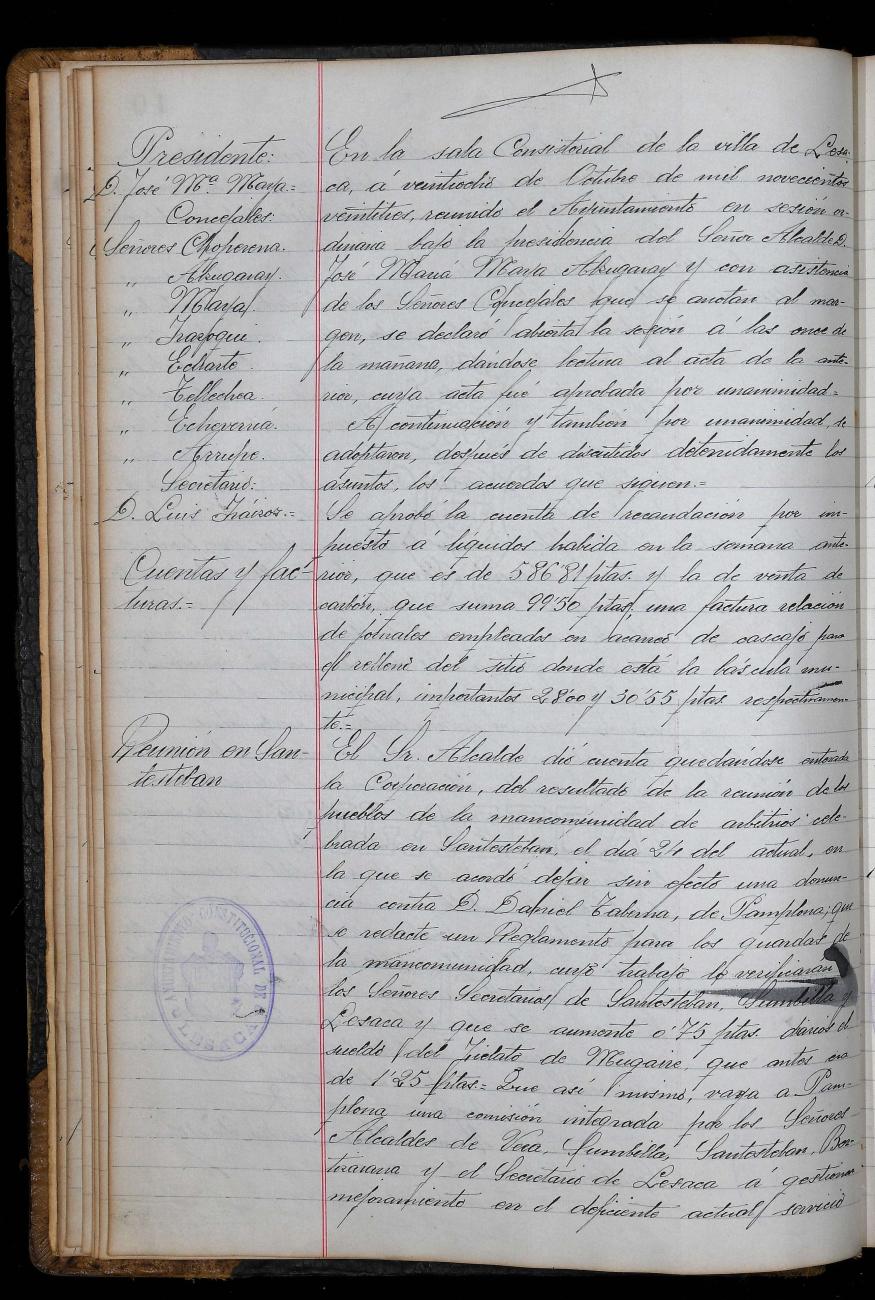 Presidente:
D. José Mª Maya=
Concejales.
Señores Choperena.
„ Alzugaray.
„ Maya.
„ Irazoqui.
„ Echarte.
„ Tellechea.
„ Echeverría.
„ Arrupe.
Secretario:
D. Luis Iráizoz.=
Cuentas y fac-
turas.=
Reunión en San-
testeban
AYUNTAMIENTO CONSTITUCIONAL DE LESACA
En la sala Consistorial de la villa de Lesa-
ca, á veintiocho de Octubre de mil novecientos
veintitres, reunido el Ayuntamiento en sesión or-
dinaria bajo la presidencia del Señor Alcalde D.
José María Maya Alzugaray y con asistencia
de los Señores Concejales que se anotan al mar-
gen, se declaró abierta la sesión á las once de
la mañana, dándose lectura al acta de la ante-
rior, cuya acta fué aprobada por unanimidad=
A continuación y tambien por unanimidad, se
adoptaron, después de discutidos detenidamente los
asuntos, los acuerdos que siguen.=
Se aprobó la cuenta de recaudación por im-
puesto á líquidos habida en la semana ante-
rior, que es de 586'81 ptas. y la de venta de
carbón, que suma 99'50 ptas, una factura relación
de jornales empleados en acarreo de cascajo para
el relleno del sitio donde está la báscula mu-
nicipal, importantes 28'00 y 30'55 ptas. respectivamen-
te.=
El Sr. Alcalde dió cuenta quedándose enterada
la Corporación, del resultado de la reunión de los
pueblos de la mancomunidad de arbitrios cele-
brada en Santesteban, el día 24 del actual, en
la que se acordó dejar sin efecto una denun-
cia contra D. Daniel Taberna, de Pamplona; que
se redacte un Reglamento para los guardas de
la mancomunidad, cuyo trabajo lo verificaran
los Señores Secretarios de Santesteban, Sumbilla y
Lesaca y que se aumente 0'75 ptas. diarios el
sueldo del Fielato de Mugaire, que antes era
de 1'25 ptas.= Que así mismo, vaya a Pam-
plona una comisión integrada por los Señores
Alcaldes de Vera, Sumbilla, Santesteban, Ber-
tizarana y el Secretario de Lesaca á gestionar
mejoramiento en el deficiente actual servicio